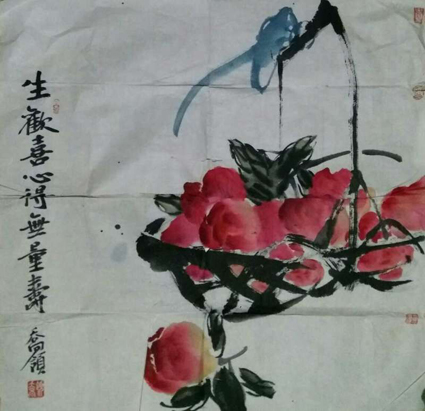 生歡喜心得無量壽
喬領